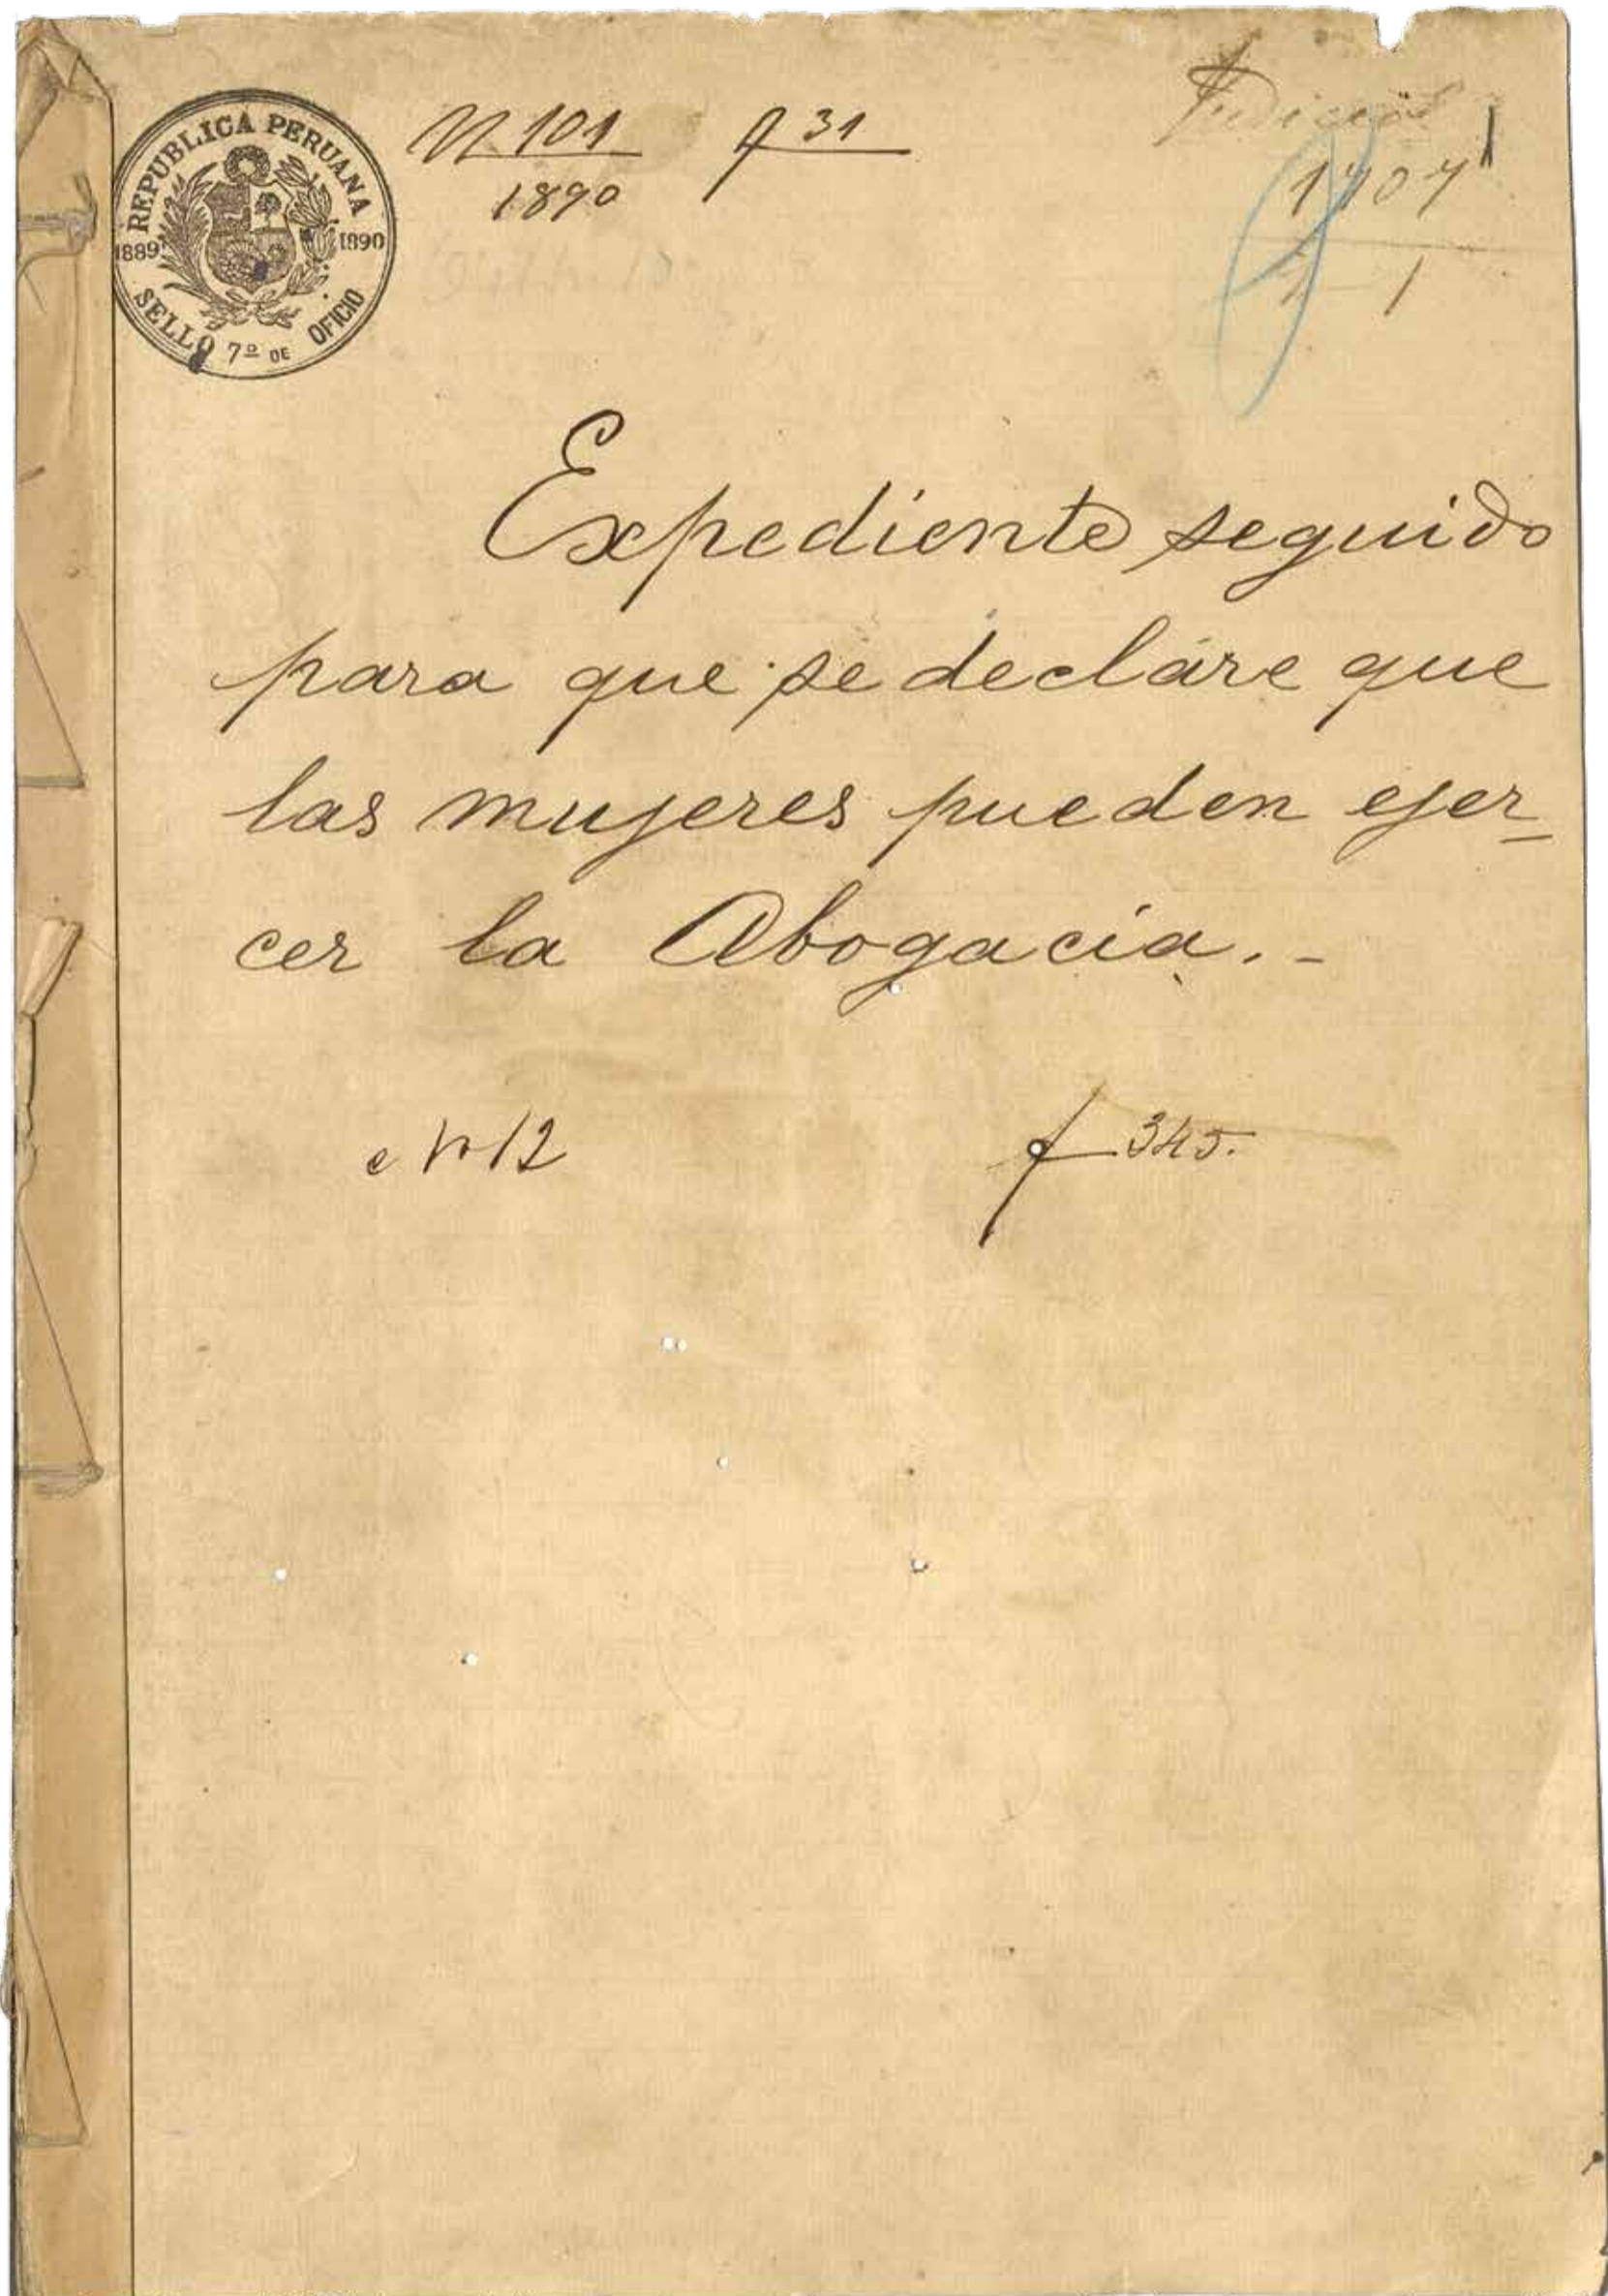 REPUBLICA PERUANA
1889 1890
SELLO 7º DE OFICIO
N 101 f 31
1890
Judicial
1
1
Expediente seguido
para que se decláre que
las mujeres pueden ejer_
cer la Abogacía.-
Nº 12 f 345.